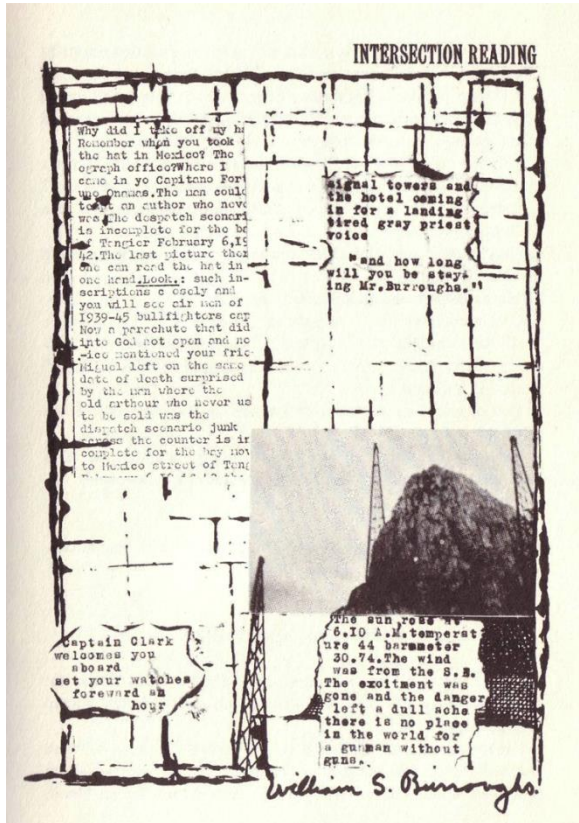 INTERSECTION READING
Why did I take off my
Remember when you took
the hat in Mexico? The
ograph office?Where I
came in yo Capitano Fort
uno Onamas.The man could
an author who
was.The despatch scenari
is incomplete for the
of Tangier February 6,19
42.The last picture
one can read the hat in
one hand.Look.: such in-
scriptions c osely and
you will see air men of
1939-45 bullfighters cap
Now a parachute that did
into God not open and
-ico mentioned your
Miguel left on the same
date of death surprised
by the man where the
old arthour who never us
to be sold was the
dispatch scenario junk
across the counter is
complete for the
to Mexico street of Tang
signal towers and
the hotel coming
in for a landing
tired gray priest
voice
"and how long
will you be stay-
ing Mr.Burroughs."
Captain Clark
welcomes you
aboard
set your watches
foreward an
hour
The sun rose at
6.IO A.M.temperat
ure 44 barometer
30.74.The wind
was from the S.E.
The excitment was
gone and the danger
left a dull ache
there is no place
in the world for
a gunman without
guns.
William S. Burroughs.